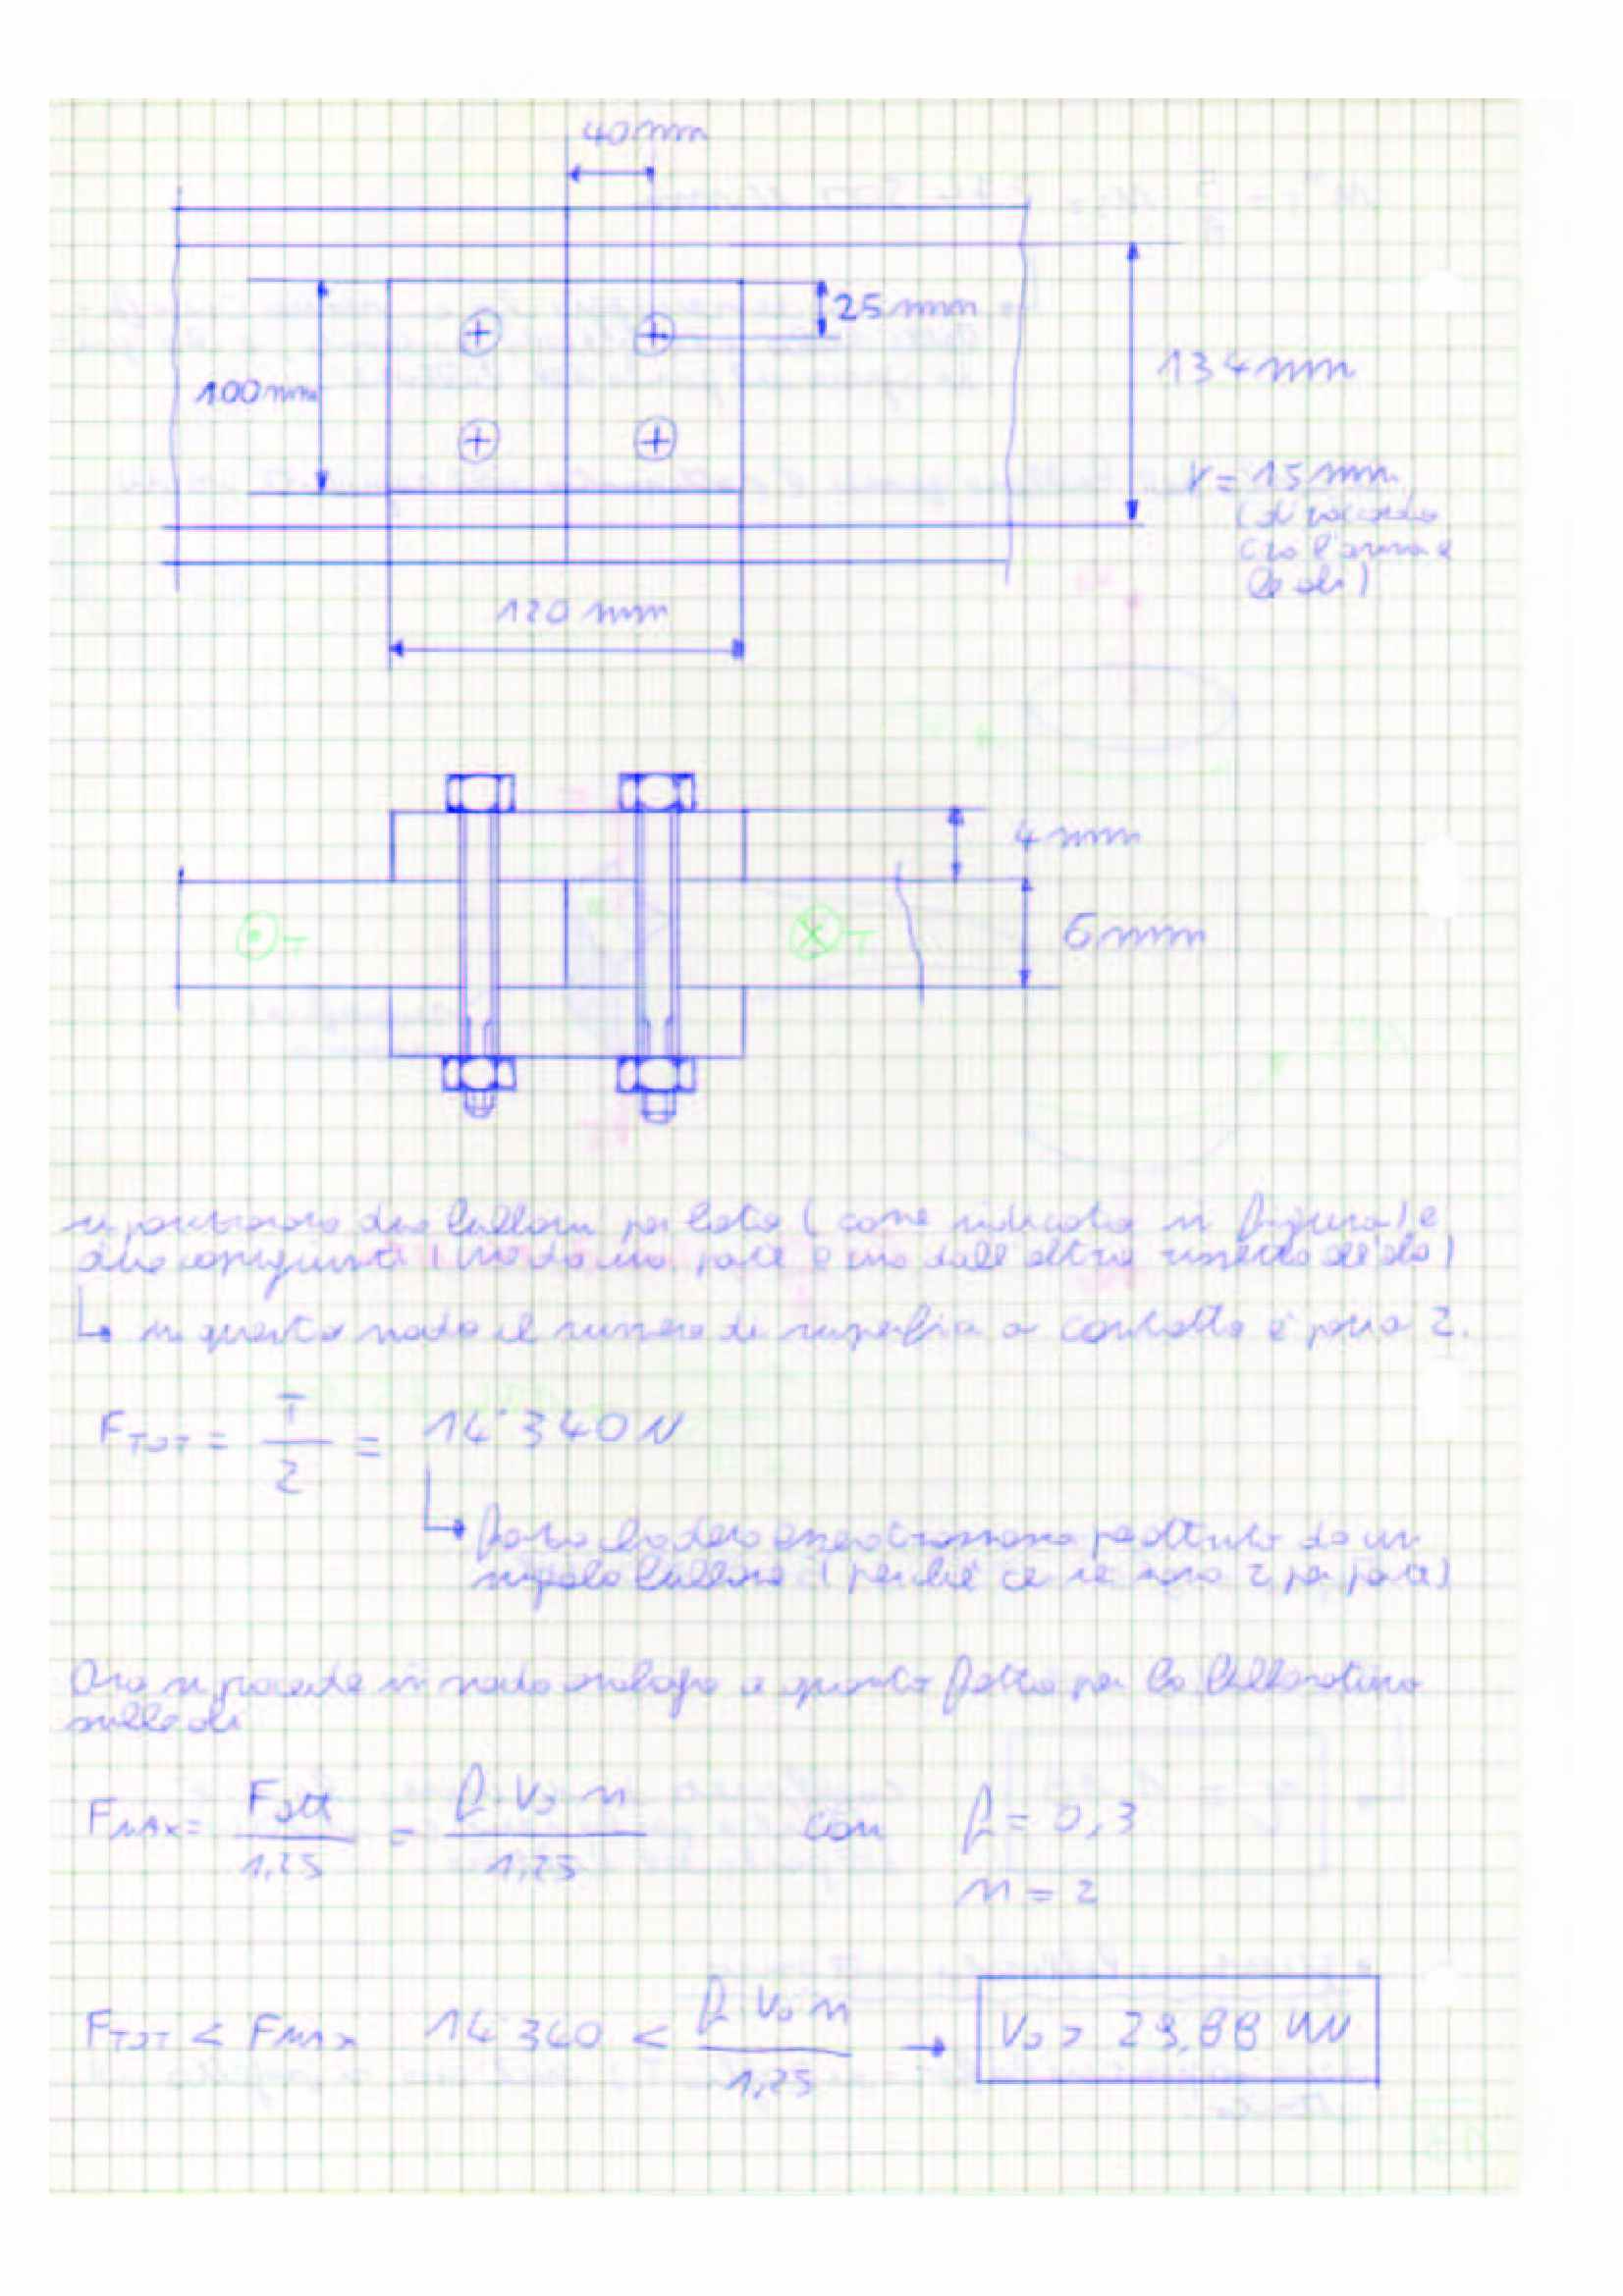 40mm
25mm
100mm
134mm
r = 15mm
(di raccordo
tra l'anima e
le ali)
120 mm
4mm
T
T
6mm
si posizionano due bulloni per lato (come indicato in figura) e
due coprigiunti (uno da una parte e uno dall'altra rispetto all'ala)
↳ in questo modo il numero di superfici a contatto è pari a 2.
F_TOT = T/2 = 14'340 N
↳ forza che deve essere trasmessa per attrito da un
singolo bullone (perché ce ne sono 2 per parte)
Ora si procede in modo analogo a quanto fatto per la bullonatura
sulle ali
F_MAX = F_att/1,25 = f · V₀ · n/1,25 con f = 0,3
n = 2
F_TOT < F_MAX 14'340 < f · V₀ · n/1,25 → V₀ > 29,88 kN